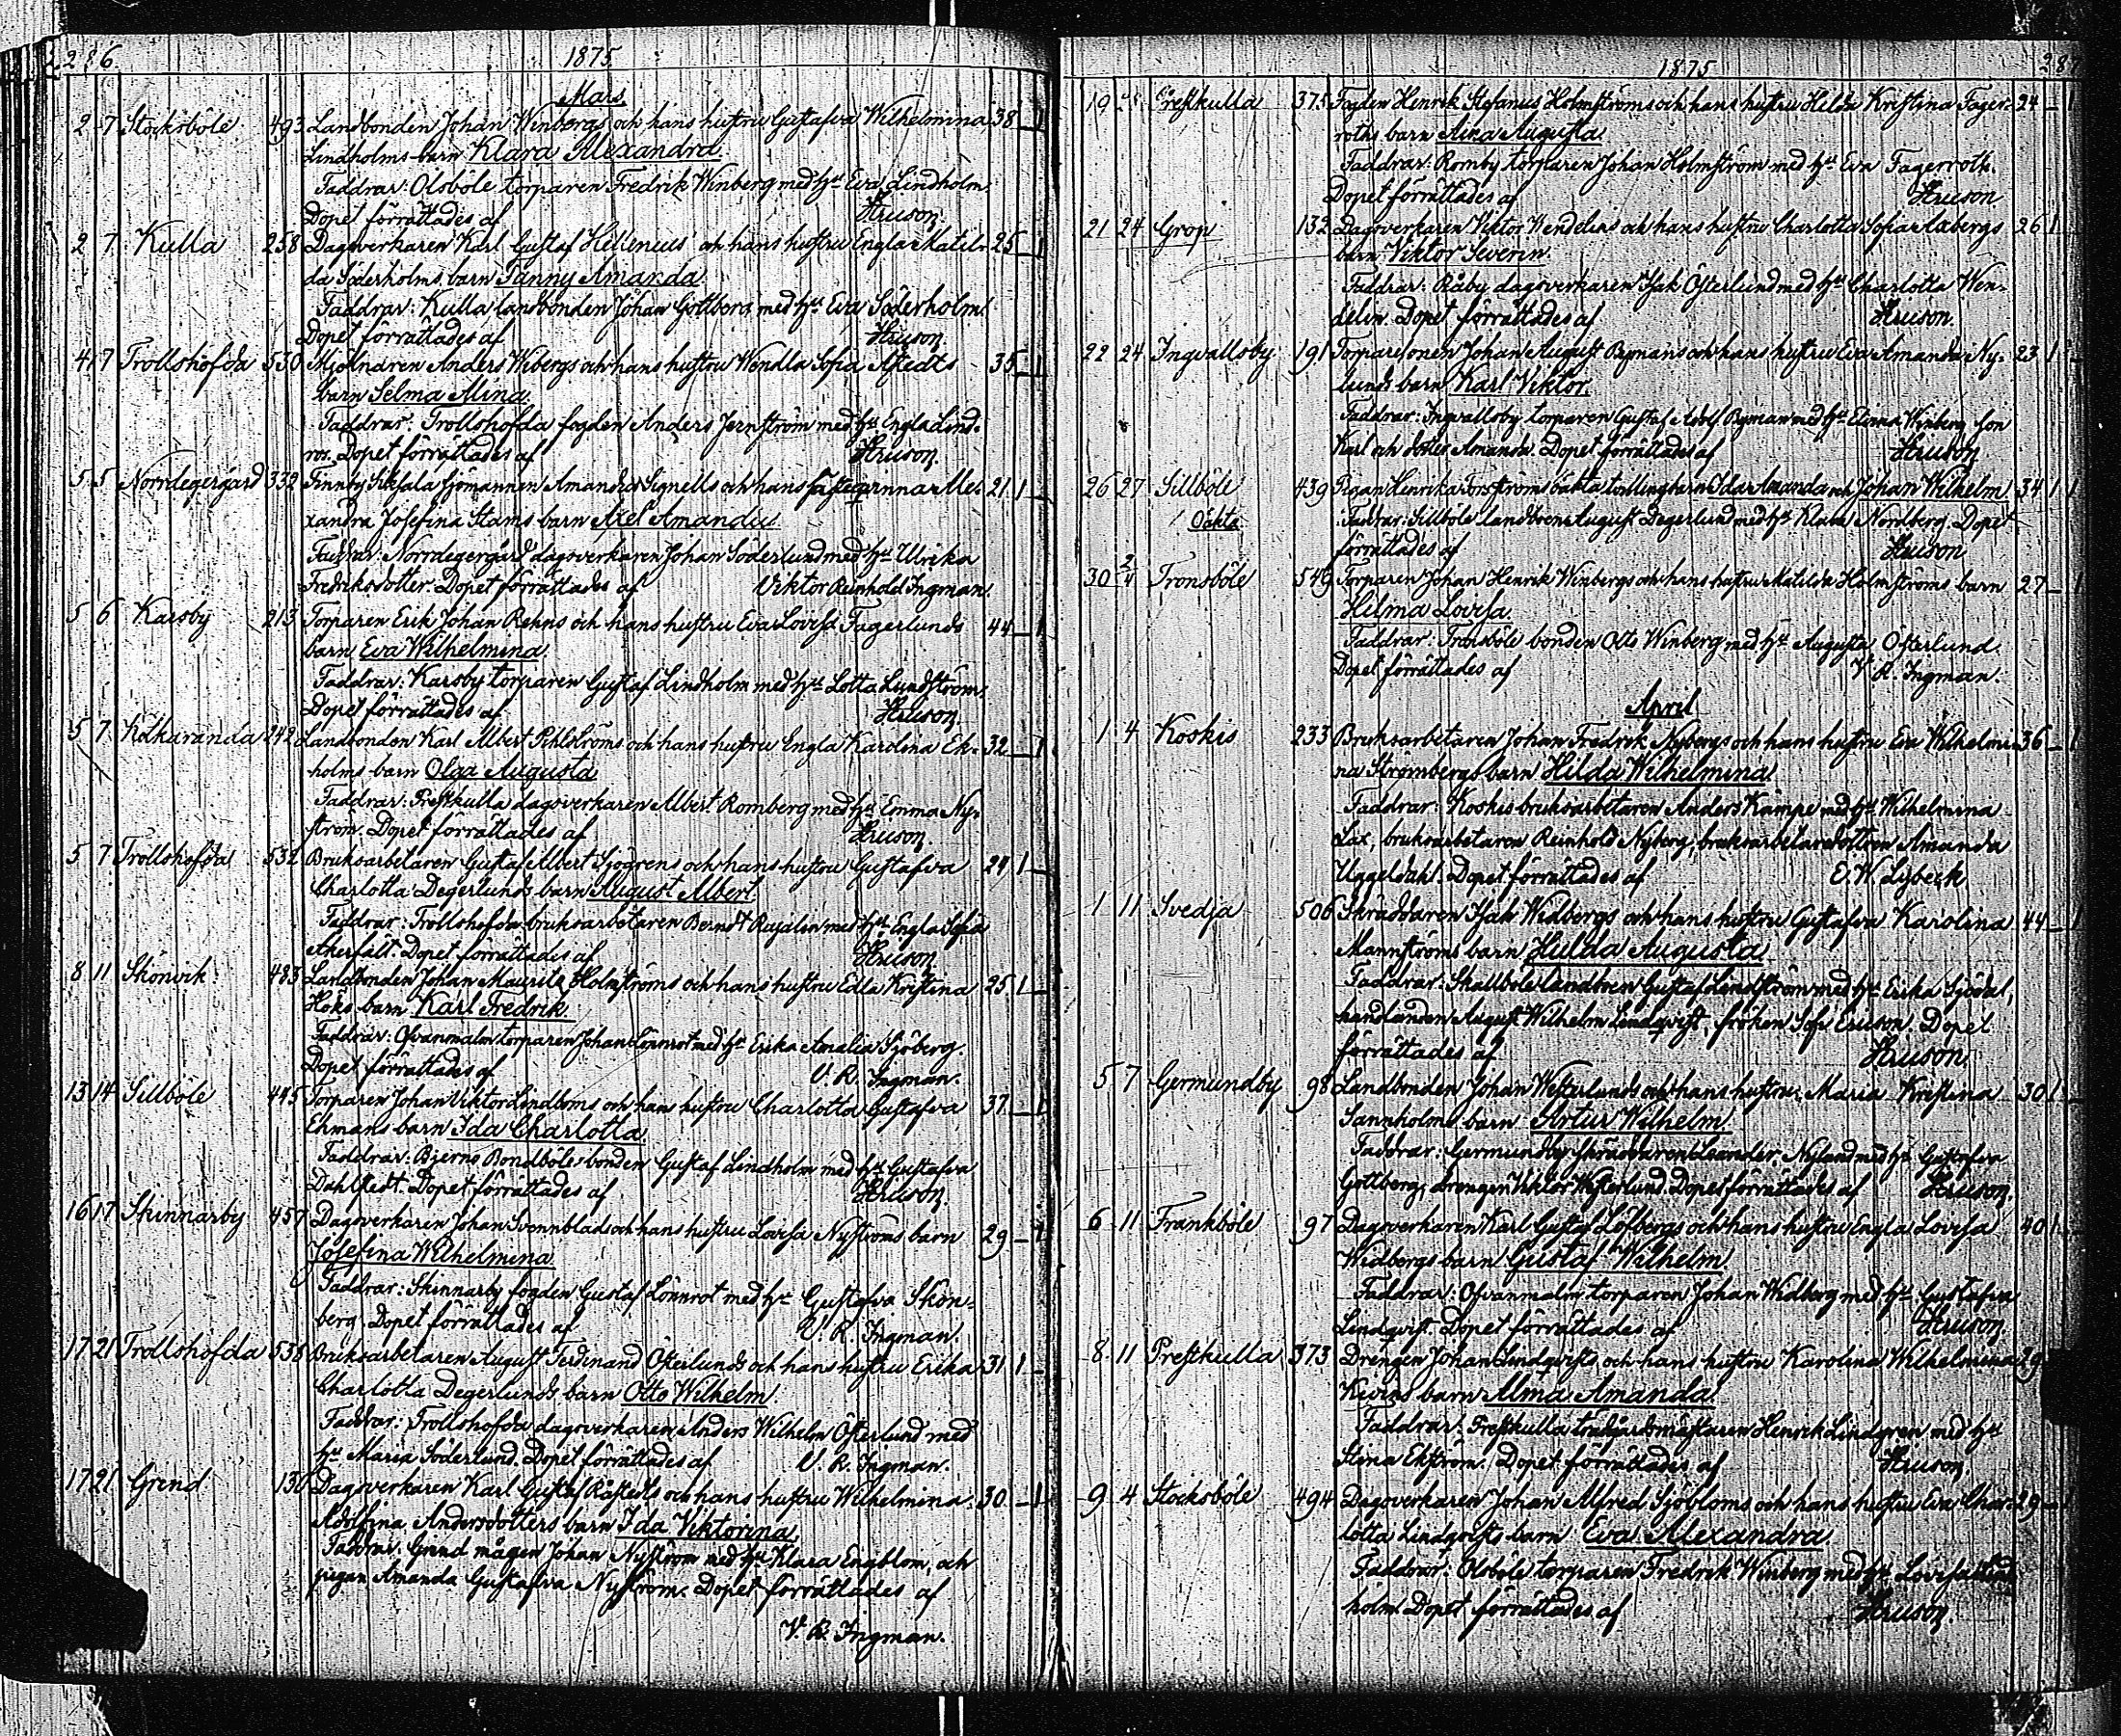 286. 1875
Mars.
2 7 Stocksböle 493 Landbonden Johan Winbergs och hans hustru Gustafva Wilhelmina 38 – 1
Lindholms barn Klara Alexandra
Faddrar: Olsböle torparen Fredrik Winberg med h:u Eva Lindholm.
Dopet förrättades af Heuson.
2 7 Kulla 258 Dagsverkaren Karl Gustaf Hellenius och hans hustru Engla Matil- 25 – 1
da Söderholms barn Fanny Amanda.
Faddrar: Kulla landbonden Johan Gottberg med h:u Eva Söderholm.
Dopet förrättades af Heuson.
4 7 Trollshofda 530 Mjölnaren Anders Wibergs och hans hustru Wendla Sofia Åstedts 35 – 1
barn Selma Mina.
Faddrar: Trollshofda fogden Anders Jernström med h:u Engla Lind-
ros. Dopet förrättades af Heuson.
5 5 Norrdegergård 332 Finnby sjömannen Amandus Signells och hans Ale- 21 1 –
xandra Josefina Stams barn Axel Amandus
Faddrar: Norrdegergård dagsverkaren Johan Söderlund med h:u Ulrika
Fredriksdotter. Dopet förrättades af Viktor Reinhold Ingman.
5 6 Karsby 213 Torparen Erik Johan Rehns och hans hustru Eva Lovisa Fagerlunds 44 – 1
barn Eva Wilhelmina
Faddrar: Karsby torparen Gustaf Lindholm med h:u Lotta Lundström.
Dopet förrättades af Heuson.
5 7 242 Landbonden Karl Albert Pihlströms och hans hustru Engla Karolina Ek- 32 – 1
holms barn Olga Augusta
Faddrar: Prestkulla dagsverkaren Albert Romberg med h:u Emma Ny-
ström. Dopet förrättades af Heuson.
5 7 Trollshofda 532 Bruksarbetaren Gustaf Albert Sjögrens och hans hustru Gustafva 24 1 –
Charlotta Degerlunds barn August Albert.
Faddrar: Trollshofda bruksarbetaren Berndt med h:u Engla Sofia
Åkerfalt. Dopet förrättades af Heuson.
8 11 Skönvik 483 Landbonden Johan Maurits Holmströms och hans hustru Edla Kristina 25 1 –
Höks barn Karl Fredrik.
Faddrar: Ofvanmalm torparen Johan Lönnrot med h:u Erika Amalia Sjöberg.
Dopet förrättades af V. R. Ingman.
13 14 Sillböle 445 Torparen Johan Viktor Lindbloms och hans hustru Charlotta Gustafva 37 – 1
Ekmans barn Ida Charlotta.
Faddrar: Bjerno Bondböle bonden Gustaf Lindholm med h:u Gustafva
Dahlstedt. Dopet förrättades af Heuson.
16 17 Skinnarby 457 Dagsverkaren Johan Svennblads och hans hustru Lovisa Nyströms barn 29 – 1
Josefina Wilhelmina.
Faddrar: Skinnarby fogden Gustaf Lönnrot med h:u Gustafva Skön-
berg. Dopet förrättades af V. R. Ingman.
17 21 Trollshofda 538 Bruksarbetaren August Ferdinand Österlunds och hans hustru Erika 31 1 –
Charlotta Degerlunds barn Otto Wilhelm.
Faddrar: Trollshofda dagsverkaren Anders Wilhelm Österlund med
h:u Maria Söderlund. Dopet förrättades af V. R. Ingman.
17 21 Grend 130 Dagsverkaren Karl Gustaf Råstedts och hans hustru Wilhelmina 30 – 1
Adolfina Andersdotters barn Ida Viktorina.
Faddrar: Grend mågen Johan Nyström med h:u Klara Engblom, och
pigan Amanda Gustafva Nyström. Dopet förrättades af
V. R. Ingman.
1875 287
19 Prestkulla 375 Fogden Henrik Stefanus Holmströms och hans hustru Hilda Kristina Fager- 24 – 1
roths barn Aina Augusta
Faddrar: Romby torparen Johan Holmström med h:u Eva Fagerroth.
Dopet förrättades af Heuson
21 24 Grop 132 Dagsverkaren Viktor Wendelins och hans hustru Charlotta Sofia 26 1
barn Viktor Severin.
Faddrar: Råby dagsverkaren Isak Österlund med h:u Charlotta Wen-
delin. Dopet förrättades af Heuson.
22 24 Ingvallsby 191 Torparesonen Johan August Rymans och hans hustru Eva Amanda Ny- 23 1 –
lunds barn Karl Viktor.
Faddrar: Ingvallsby torparen Gustaf Adolf Ryman med h:u Winberg, son
Karl och dotter Amanda. Dopet förrättades af Heuson
26 27 Sillböle 439 Pigan Henrika Forsströms oäkta tvillingbarn Ida Amanda och Johan Wilhelm. 34 1 1
Oäkta Faddrar: Sillböle landboen August Degerlund med h:u Klara Nordberg. Dopet
förrättades af Heuson
30 2/4 Tronsböle 549 Torparen Johan Henrik Winbergs och hans hustru Matilda Holmströms barn 27 – 1
Hilma Lovisa.
Faddrar: Tronsböle bonden Otto Winberg med h:u Augusta Österlund.
Dopet förrättades af V. R. Ingman.
April
1 4 Koskis 233 Bruksarbetaren Johan Fredrik Nybergs och hans hustru Eva Wilhelmi- 36 – 1
na Strömbergs barn Hilda Wilhelmina
Faddrar: Koskis bruksarbetaren Anders Kämpe med h:u Wilhelmina
Lax, bruksarbetaren Reinhold Nyberg, bruksarbetaredottren Amanda
Uggeldahl. Dopet förrättades af E. W. Lybeck
1 11 Svedja 506 Skräddaren Isak Widbergs och hans hustru Gustafva Karolina 44 – 1
Mannströms barn Hulda Augusta
Faddrar: Skallböle landboen Gustaf Lindström med h:u Erika Sjödal,
handlanden August Wilhelm Lindqvist, fröken Sofi Ericson. Dopet
förrättades af Heuson.
5 7 Germundby 98 Landbonden Johan Westerlunds och hans hustru Maria Kristina 30 1 –
Sannholms barn Artur Wilhelm.
Faddrar: Germundby skräddaren Leander Nylund med h:u Gustafva
Gottberg, drengen Viktor Westerlund. Dopet förrättades af Heuson.
6 11 Frankböle 97 Dagsverkaren Karl Gustaf Löfbergs och hans hustru Engla Lovisa 40 1 –
Widbergs barn Gustaf Wilhelm.
Faddrar: Ofvanmalm torparen Johan Widberg med h:u Gustafva
Lindqvist. Dopet förrättades af Heuson.
8 11 Prestkulla 373 Drengen Johan Lindqvists och hans hustru Karolina Wilhelmina 29
barn Alma Amanda.
Faddrar: Prestkulla trädgårdsmästaren Henrik Lindgren med h:u
Stina Ekström. Dopet förrättades af Heuson.
9 4 Stocksböle 494 Dagsverkaren Johan Alfred Sjöbloms och hans hustru Eva Char- 29 –
lotta Lindqvists barn Eva Alexandra
Faddrar: Olsböle torparen Fredrik Winberg med h:u Lovisa Lind-
holm. Dopet förrättades af Heuson.